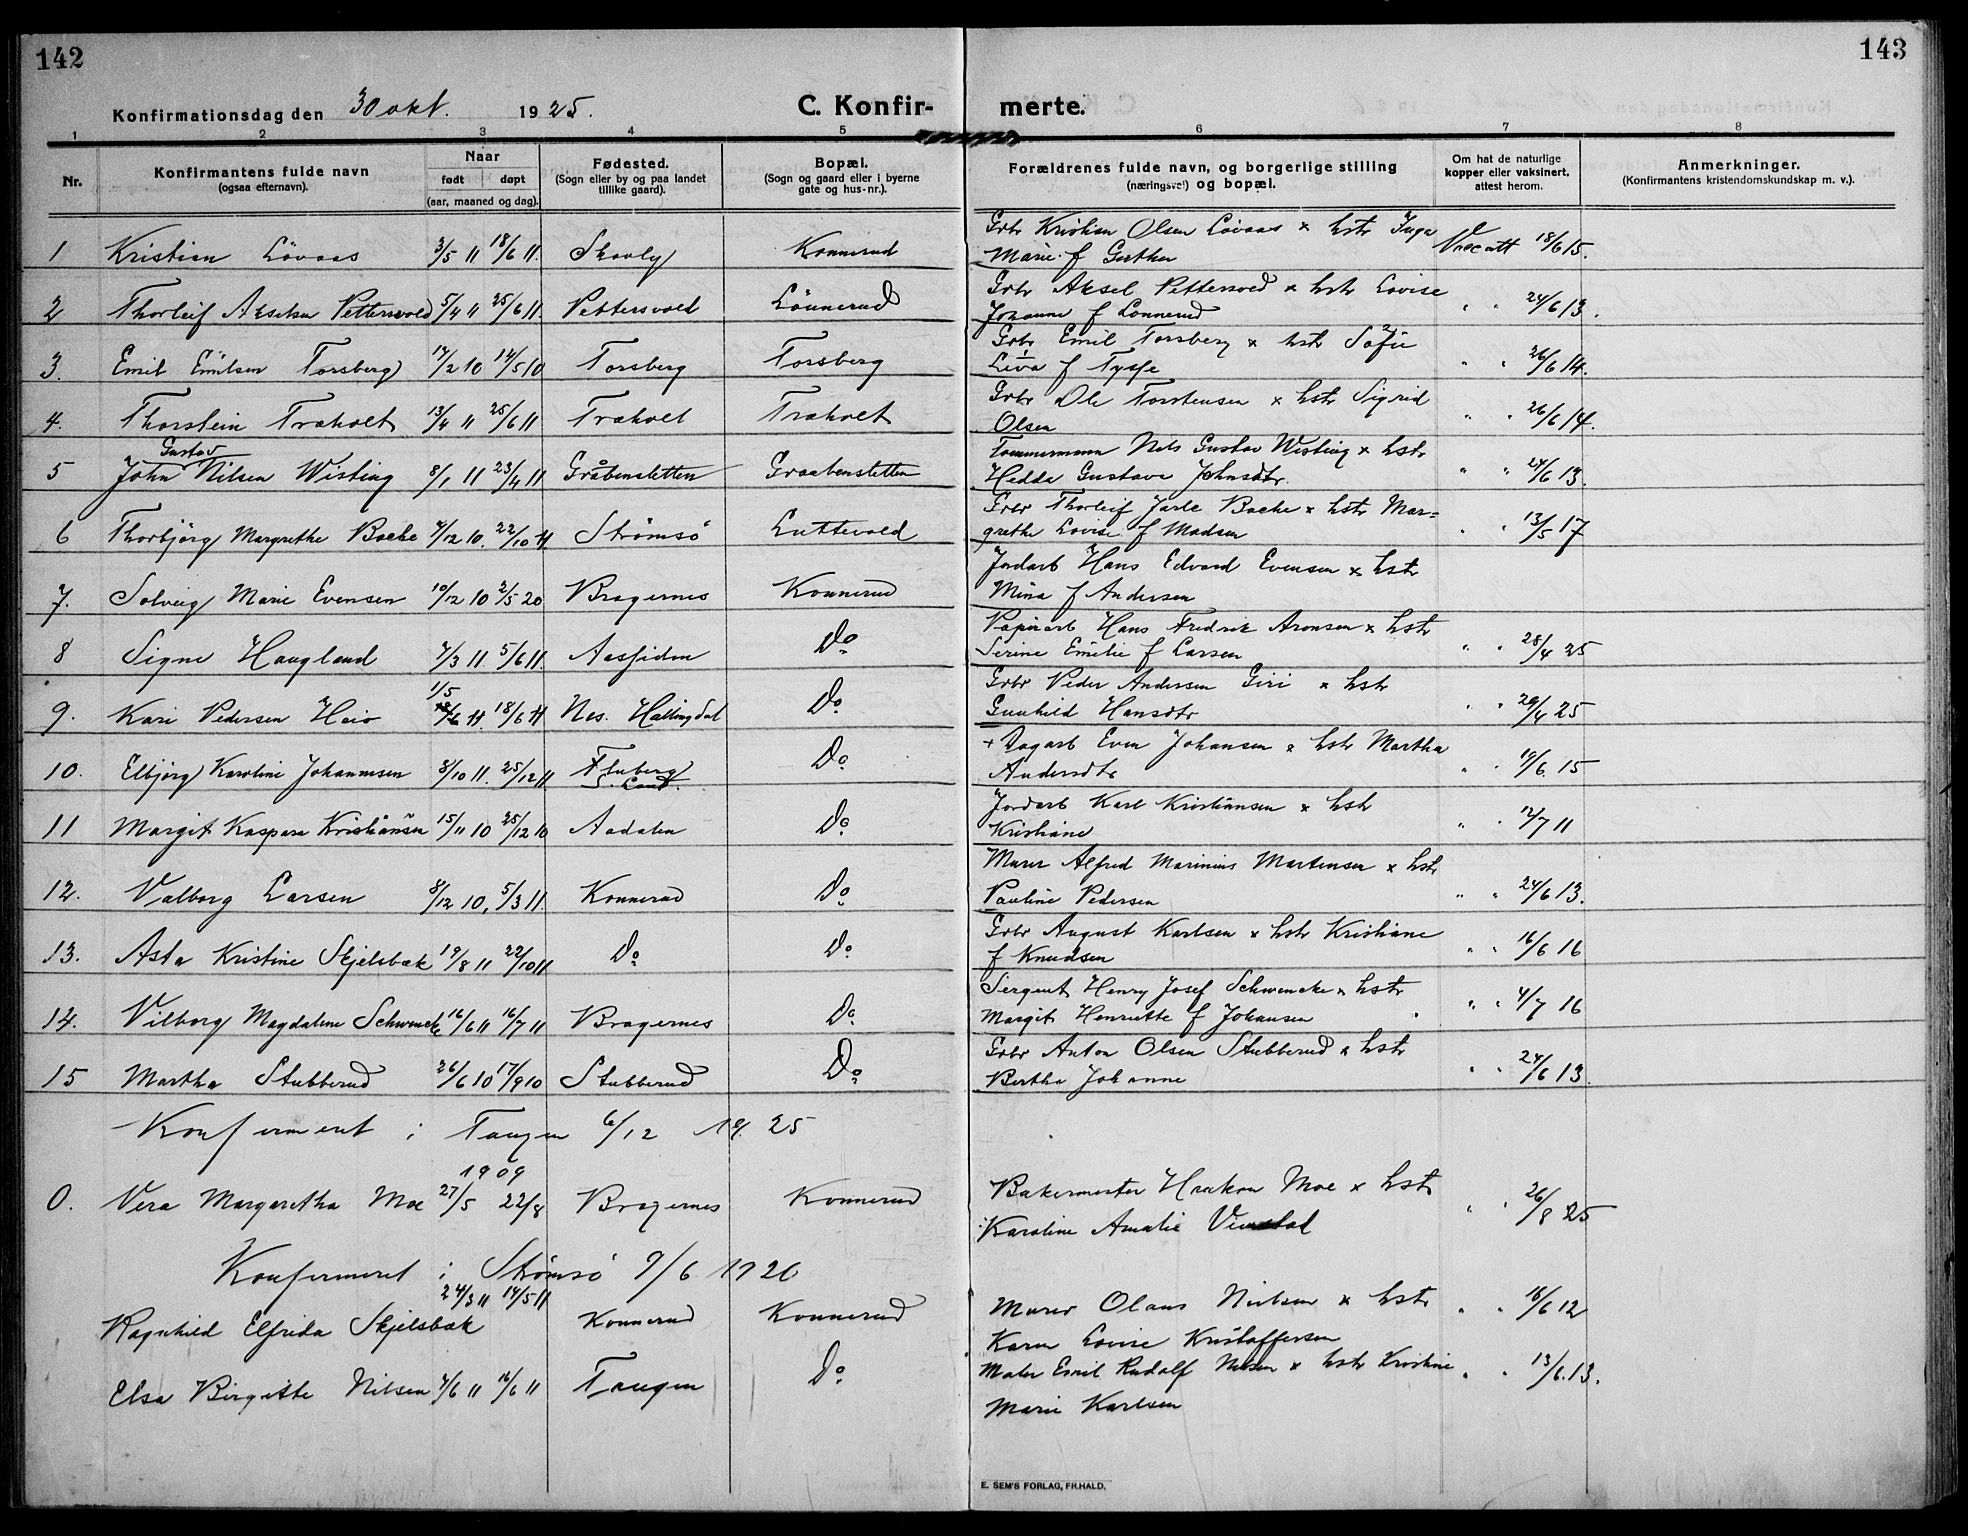 142
143
Konfirmationsdag den 30 okt. 1925.
C. Konfir- merte.
1 2 3 4 5 6 7 8
Nr.
Konfirmantens fulde navn
(ogsaa efternavn).
Naar
født døpt
(aar, maaned og dag).
Fødested.
(Sogn eller by og paa landet
tillike gaard).
Bopæl.
(Sogn og gaard eller i byerne
gate og hus-nr.).
Forældrenes fulde navn, og borgerlige stilling
(næringsvei) og bopæl.
Om hat de naturlige
kopper eller vaksinert,
attest herom.
Anmerkninger.
(Konfirmantens kristendomskundskap m. v.).
Grbr Kristian Olsen Lövaas x hstr Inga
1 Kristian Lövaas 3/5 11 18/6 11. Skovly Konnerud Marie f Guthu Vacc att 18/6 15.
Grbr Aksel Pettersvold x hstr Lovise
2 Thorleif Akselsen Pettersvold 5/4 11 25/6 11. Pettersvold Lönnerud Johanne f Lonnerud " " 24/6 13.
Grbr Emil Torsberg x hstr Sofie
3. Emil Emilsen Torsberg 17/2 10 14/5 10 Torsberg Torsberg Liva f Tysse " " 26/6 14.
Grbr Ole Torstensen x hstr Sigrid
4. Thorstein Træholt 13/4 11 25/6 11 Træholt Træholt Olsen " " 26/6 14.
Gustav
Tømmermann Nils Gustav Wisting x hstr
5 John Nilsen Wisting 8/1 11 23/4 11 Gråbensletten Graabensletten Hedda Gustava Johnsdtr. " " 24/6 13.
Grbr Thorleif Jarle Bache x hstr Mar=
6 Thorbjörg Margrethe Bache 4/12 10. 22/10 11 Strømsö Luttevold grethe Lovise f Madsen " " 13/5 17
Jordarb Hans Edvard Evensen x hstr
7. Solveig Marie Evensen 10/12 10 2/5 20 Bragernes Konnerud Mina f Andersen
Papirarb Hans Fredrik Aronsen x hstr
8 Signe Haugland 7/3 11. 5/6 11. Aassiden Do Serine Emilie f Larsen " " 28/4 25
1/5
Grbr Peder Andersen Giri x hstr
9. Kari Pedersen Heio 18/6 11 18/6 11 Nes. Hallingdal Do Gunhild Hansdtr " " 29/4 25
+ Dagarb Even Johansen x hstr Martha
10. Elbjörg Karoline Johannesen 8/10 11. 25/12 11 Fluberg Do Andersdtr " " 19/6. 15
S. Land.
Jordarb Karl Kristiansen x hstr
11 Margit Kaspara Kristiansen 15/11 10 25/12 10 Aadalen Do Kristiane " " 12/7 11
Murer Alfred Marinius Martensen x hstr
12. Valborg Larsen 8/12 10, 5/3 11. Konnerud Do Pauline Pedersen " " 24/6 13.
Grbr August Karlsen x hstr Kristiane
13. Asta Kristine Skjelsbæk 19/8 11 22/10 11 Do Do f Knudsen " " 16/6 16
Sergent Henry Josef Schwencke x hstr
14. Vilborg Magdalene Schwencke 16/6 11 16/7 11 Bragernes Do Margit Henriette f Johansen " " 4/7 16
Grbr Anton Olsen Stubberud x hstr
15 Martha Stubberud 26/6 10 17/9 10 Stubberud Do Bertha Johanne " " 24/6 13.
Konfirmert i Tangen 6/12 19.25
1909
Bakermester Haakon Moe x hstr
0. Vera Margaretha Moe 27/5 22/8 Bragernes Konnerud Karoline Amalie " " 26/8 25
Konfirmeret i Strømsö 9/6 1926
24/3 11 14/5 11
Murer Olaus Nielsen x hstr " " 18/6 12
Ragnhild Elfrida Skjelsbæk Konnerud Konnerud Karen Lovise Kristoffersen
Maler Emil Rudolf Nilsen x hstr Kristine " " 13/6. 13.
Elsa Birgitte Nilsen 4/6 11 16/6 11 Tangen Do Marie Karlsen
E. SEM'S FORLAG, FR.HALD.